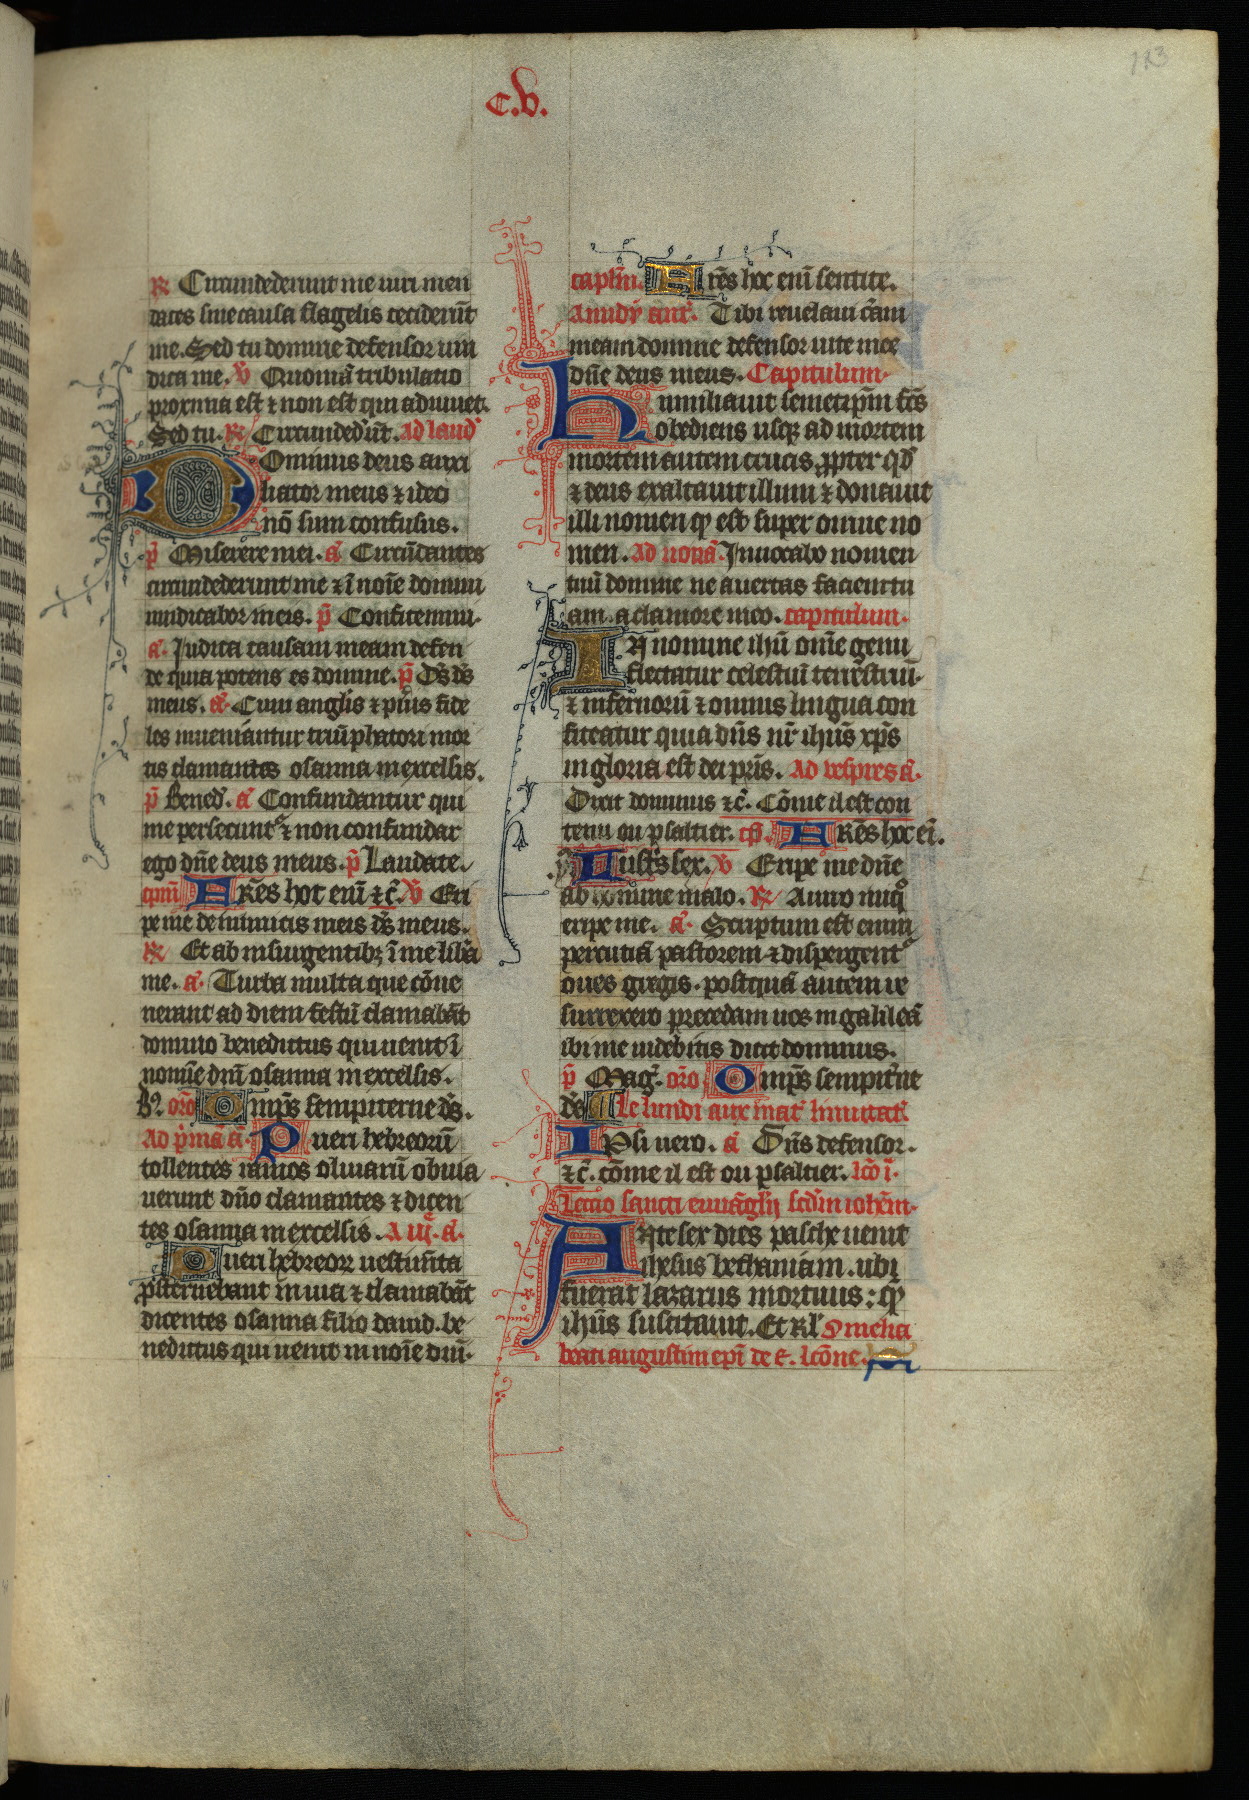 113
C.V.
℟ Circundederunt me viri men
daces sine causa flagelis ceciderūt
me. Sed tu domine defensor uin
dica me. ℣ Quoniā tribulatio
proxima est ⁊ non est qui adiuuet.
Sed tu. ℟ Circundedūt. Ad laud'
Dominus deus auxi
liator meus ⁊ ideo
nō sum confusus.
p̄ Miserere mei. a͞. Circūdantes
circundederunt me ⁊ ī noīe domini
uindicabor in eis. p̄ Confitemini.
a͞. Judica causam meam defen
de quia potens es domine. p̄ Ds̄ ds̄
meus. a͞. Cum anglis ⁊ pueris fide
les inueniantur triūphatori mor
tis clamantes osanna in excelsis.
p̄ Bened'. a͞ Confundantur qui
me persecunt᷑ ⁊ non confundar
ego dn̄e deus meus. p̄ Laudate.
cpm̄ FRēs hoc enī ⁊c̄. ℣ Eri
pe me de inimicis meis ds̄ meus.
℟ Et ab insurgentibꝫ ī me liba
me. a͞. Turba multa que cōue
nerant ad diem festū clamabāt
domino benedictus qui uenit ī
nomīe dn̄i osanna in excelsis.
B9. or̄o Omp̄s sempiterne ds̄.
Ad p̄mā a͞. Pueri hebreorū
tollentes ramos oliuarū obuia
uerunt dn̄o clamantes ⁊ dicen
tes osanna in excelsis. A iij͞. a͞.
Pueri hebreoꝝ uestimēta
p̄sternebant in uia ⁊ clamabāt
dicentes osanna filio dauid. be
nedictus qui uenit in noīe dn̄i.
capl̄m. Frēs hoc enī sentite.
A midy ant'. Tibi reuelaui cām
meam domine defensor uite mee
dn̄e deus meus. Capitulum.
humiliauit semetip̄m fc̄s
obediens usqꝫ ad mortem
mortem autem crucis ꝓpter qd̄
⁊ deus exaltauit illum ⁊ donauit
illi nomen qd̄ est super omne no
men. Ad nonā. Inuocabo nomen
tuū domine ne auertas faciem tu
am. a clamore meo. capitulum.
IN nomine ihū omē genu
flectatur celestiū terrestriū.
⁊ infernorū ⁊ omnis lingua con
fiteatur quia dn̄s nr̄ ihūs xp̄s
in gloria est dei pr̄is. Ad vespres a͞.
Dixit dominus ⁊c̄. Cōme il est con
tenu ou psaltier. cp̄. FRēs hoc eī.
ymp̄ Lustͥs sex. ℣ Eripe me dn̄e
ab homine malo. ℟ A uiro iniqͦ
eripe me. a͞. Scriptum est enim
percutiā pastorem ⁊ dispergent᷑
oues gregis. postquā autem re
surrexero precedam uos in galileā
ibi me uidebitis dicit dominus.
p̄ Mag̅. or̄o Omp̄s sempit̄ne
ds̄ Le lundi aux mat' Inuitat'.
Ipsi uero. a͞ Dn̄s defensor.
⁊c̄. cōme il est ou psaltier. lcō ī.
Lectio sancti euuāglīj scd̄m ioh̄em.
Ante sex dies pasche uenit
ihesus bethaniam. ubi
fuerat lazarus mortuus: qd̄
ihūs suscitauit. Et rl̄ Omelia
beati augustini ep̄i de e. lcōne.